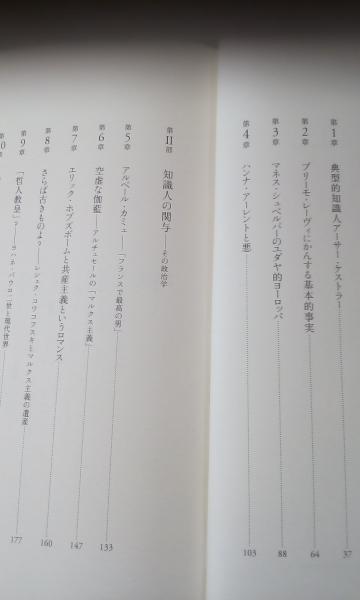 第1章 典型的知識人アーサー・ケストラー 37
第2章 プリーモ・レーヴィにかんする基本的事実 64
第3章 マネス・シュペルバーのユダヤ的ヨーロッパ 88
第4章 ハンナ・アーレントと悪 103
第II部 知識人の関与――その政治学
第5章 アルベール・カミュ――「フランスで最高の男」 133
第6章 空虚な伽藍――アルチュセールの「マルクス主義」 147
第7章 エリック・ホブズボームと共産主義というロマンス 160
第8章 さらば古きものよ?――レシェク・コワコフスキとマルクス主義の遺産 177
第9章 「哲人教皇」?――ヨハネ・パウロ二世と現代世界
第10章